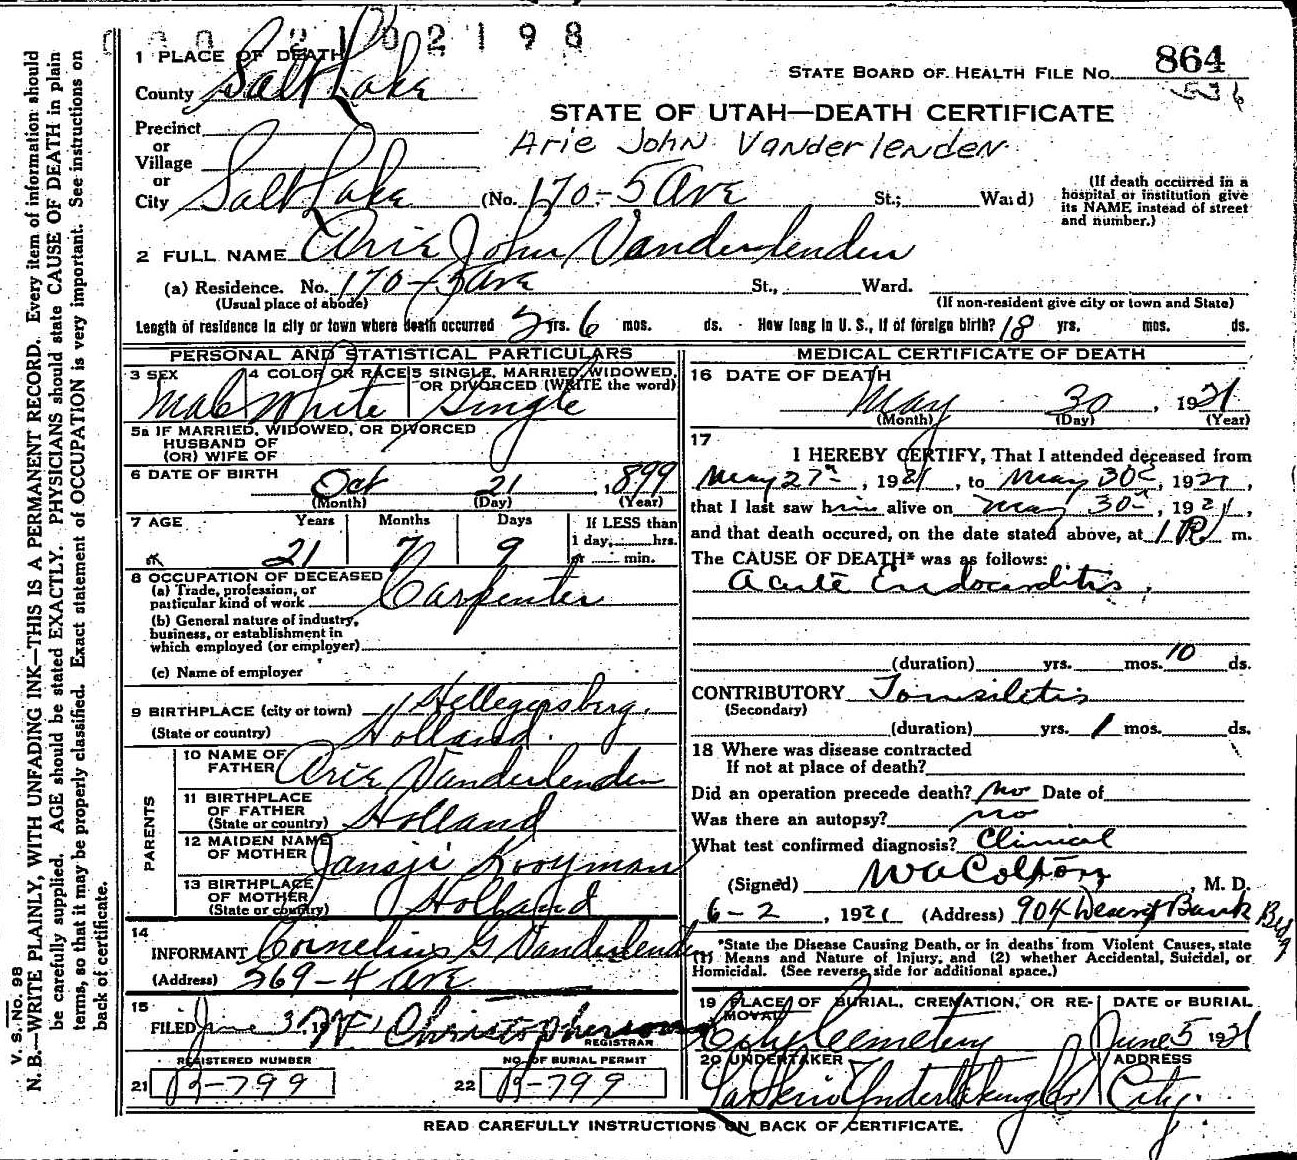 2102198
1 PLACE OF DEATH
STATE BOARD OF HEALTH FILE NO. 864
County Salt Lake
STATE OF UTAH—DEATH CERTIFICATE
Precinct
Arie John Vanderlenden
or
Village
or
City Salt Lake (No. 170-5 Ave St.; Ward) (If death occurred in a hospital or institution give its NAME instead of street and number.)
2 FULL NAME Arie John Vanderlenden
(a) Residence. No. 170-5 Ave St., Ward.
(Usual place of abode) (If non-resident give city or town and State)
Length of residence in city or town where death occurred yrs. 6 mos. ds. How long in U. S., if of foreign birth? 18 yrs. mos. ds.
PERSONAL AND STATISTICAL PARTICULARS
3 SEX 4 COLOR OR RACE 5 SINGLE, MARRIED, WIDOWED, OR DIVORCED (WRITE the word)
Male White Single
5a IF MARRIED, WIDOWED, OR DIVORCED
HUSBAND OF
(OR) WIFE OF
6 DATE OF BIRTH Oct 21 1899
(Month) (Day) (Year)
7 AGE Years Months Days If LESS than
1 day, hrs.
21 7 9 or min.
8 OCCUPATION OF DECEASED
(a) Trade, profession, or
particular kind of work Carpenter
(b) General nature of industry,
business, or establishment in
which employed (or employer)
(c) Name of employer
9 BIRTHPLACE (city or town) Hillegersberg,
(State or country) Holland.
PARENTS
10 NAME OF
FATHER Arie Vanderlenden
11 BIRTHPLACE
OF FATHER
(State or country) Holland
12 MAIDEN NAME
OF MOTHER Jansji Kooyman
13 BIRTHPLACE
OF MOTHER
(State or country) Holland
14
INFORMANT Cornelius G Vanderlenden
(Address) 269-4 Ave
15
FILED June 3, 19 Christopherson
REGISTRAR
REGISTERED NUMBER NO. OF BURIAL PERMIT
21 B-799 22 B-799
MEDICAL CERTIFICATE OF DEATH
16 DATE OF DEATH
May 30, 1921
(Month) (Day) (Year)
17
I HEREBY CERTIFY, That I attended deceased from
May 27th, 1921, to May 30th, 1921,
that I last saw him alive on May 30th, 1921,
and that death occured, on the date stated above, at 1 P m.
The CAUSE OF DEATH* was as follows:
Acute Endocarditis,
(duration) yrs. mos. 10 ds.
CONTRIBUTORY Tonsiletis
(Secondary)
(duration) yrs. 1 mos. ds.
18 Where was disease contracted
If not at place of death?
Did an operation precede death? no Date of
Was there an autopsy? no
What test confirmed diagnosis? Clinical
(Signed) W A Colton, M. D.
6-2, 1921 (Address) 904 Deseret Bank Bldg
*State the Disease Causing Death, or in deaths from Violent Causes, state
(1) Means and Nature of Injury, and (2) whether Accidental, Suicidal, or
Homicidal. (See reverse side for additional space.)
19 PLACE OF BURIAL, CREMATION, OR RE-MOVAL DATE OF BURIAL
City Cemetery June 5 1921
20 UNDERTAKER ADDRESS
Larkin Undertaking Co City.
READ CAREFULLY INSTRUCTIONS ON BACK OF CERTIFICATE.
V. S. No. 98
N. B.—WRITE PLAINLY, WITH UNFADING INK—THIS IS A PERMANENT RECORD. Every item of information should
be carefully supplied. AGE should be stated EXACTLY. PHYSICIANS should state CAUSE OF DEATH in plain
terms, so that it may be properly classified. Exact statement of OCCUPATION is very important. See instructions on
back of certificate.